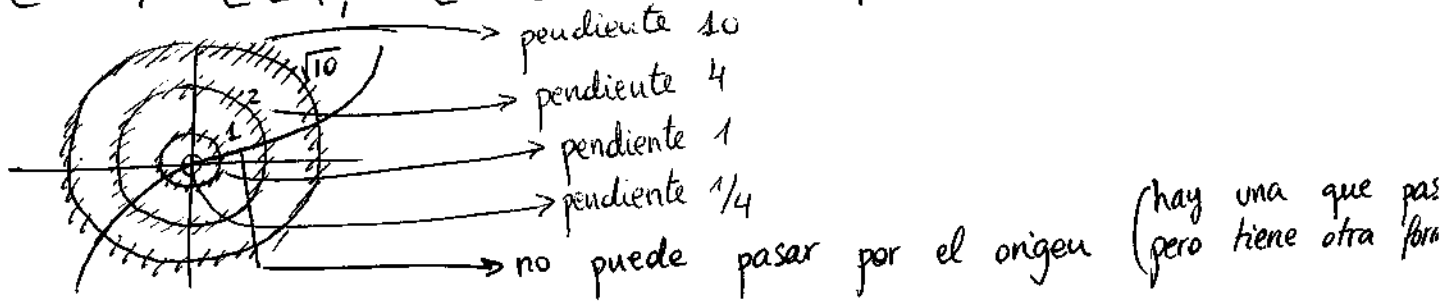 pendiente 10
√10
pendiente 4
2
1
pendiente 1
pendiente 1/4
no puede pasar por el origen (hay una que pas
pero tiene otra form